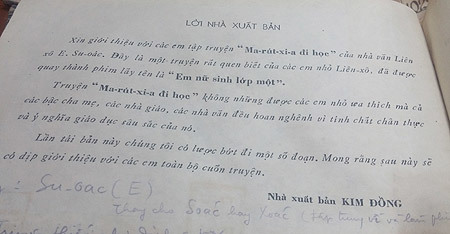 LỜI NHÀ XUẤT BẢN
Xin giới thiệu với các em tập truyện "Ma-rút-xi-a đi học" của nhà văn Liên
xô E. Su-oác. Đây là một truyện rất quen biết của các em nhỏ Liên-xô, đã được
quay thành phim lấy tên là "Em nữ sinh lớp một".
Truyện "Ma-rút-xi-a đi học" không những được các em nhỏ ưa thích mà cả
các bậc cha mẹ, các nhà giáo, các nhà văn đều hoan nghênh vì tính chất chân thực
và ý nghĩa giáo dục sâu sắc của nó.
Lần tái bản này chúng tôi có lược bớt đi một số đoạn. Mong rằng sau này sẽ
có dịp giới thiệu với các em toàn bộ cuốn truyện.
Nhà xuất bản KIM ĐỒNG
: Su-oac (E)
Thay cho hay